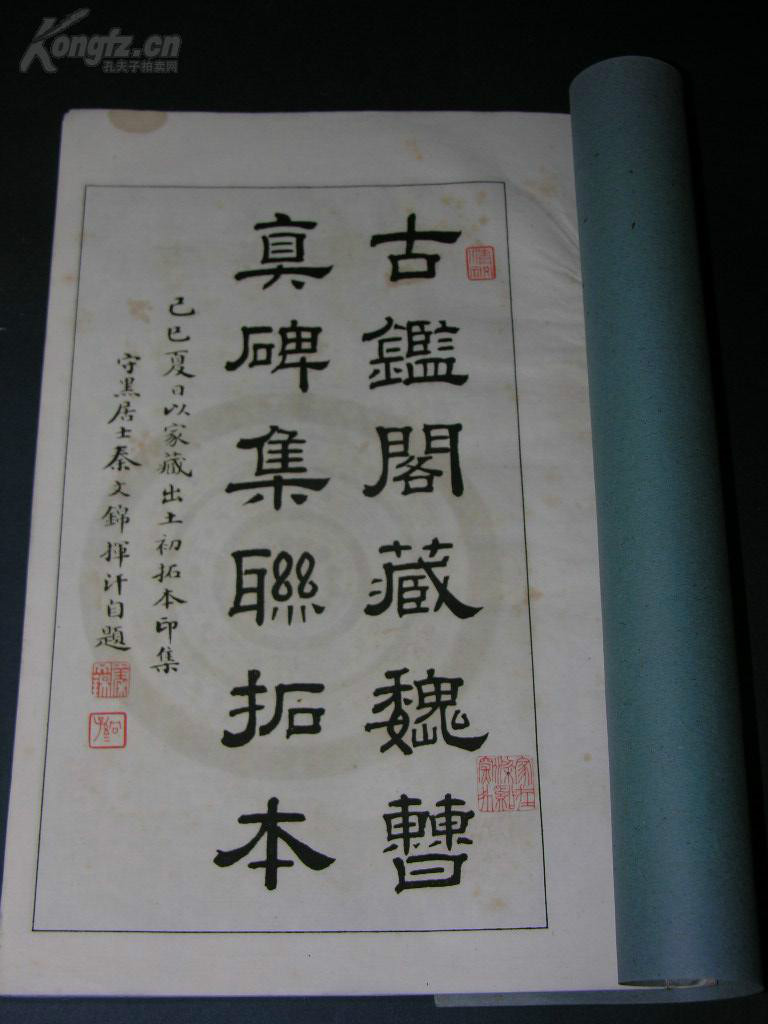 Kongfz.cn
孔夫子拍卖网
古鑑閣藏魏曹
真碑集聯拓本
己巳夏日以家藏出土初拓本印集
守黑居士秦文錦揮汗自題